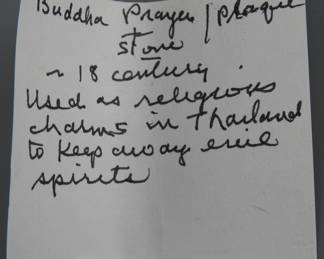 Buddha Prayer / plaque
stone
~ 18 century
Used as religious
charms in Thailand
to keep away evil
spirits